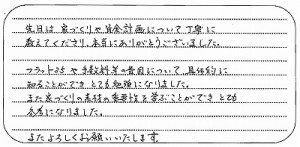 先日は家づくりや資金計画について丁寧に
教えてくださり、本当にありがとうございました。
フラット35や手数料等の費用について、具体的に
知ることができとても勉強になりました。
また家づくりの素材の重要性を学ぶことができとても
参考になりました。
またよろしくお願いいたします。